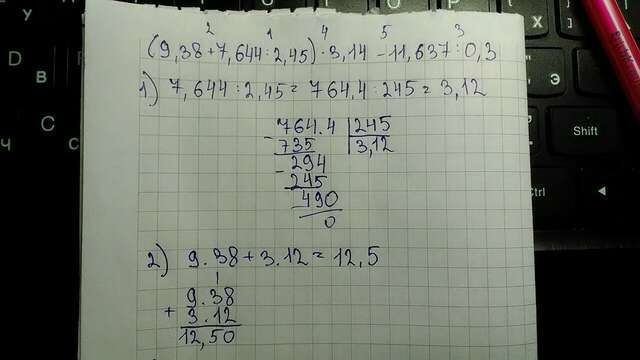 2 1 4 5 3
(9,38+7,644:2,45)·3,14-11,637:0,3
1) 7,644:2,45=764,4:245=3,12
764.4 245
- 735 3,12
- 294
245
490
0
2) 9.38+3.12=12,5
1
9.38
+ 3.12
12,50
Shift
Ctrl